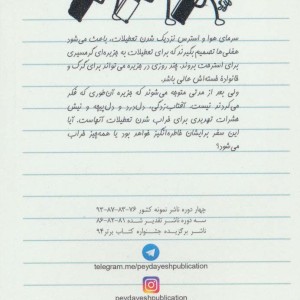 سرمای هوا و استرس نزدیک شدن تعطیلات، باعث می‌شود
هفلی‌ها تصمیم بگیرند که برای تعطیلات به جزیره‌ای گرمسیری
برای استراحت بروند. چند روزی در جزیره می‌تواند برای گرگ و
خانواده خسته‌اش عالی باشد.
ولی بعد از مدتی متوجه می‌شوند که جزیره آن‌طوری که فکر
می‌کردند نیست. آفتاب‌زدگی، دل‌درد و دل‌پیچه و نیش
حشرات تهدیدی برای خراب شدن تعطیلات آنهاست. آیا
این سفر برایشان خاطره‌انگیز خواهد بود یا همه‌چیز خراب
می‌شود؟
چهار دوره ناشر نمونه کشور ۷۶-۸۲-۸۷-۹۲
سه دوره ناشر تقدیر شده ۸۱-۸۲-۸۶
ناشر برگزیده جشنواره کتاب برتر ۹۴
telegram.me/peydayeshpublication
peydayeshpublication